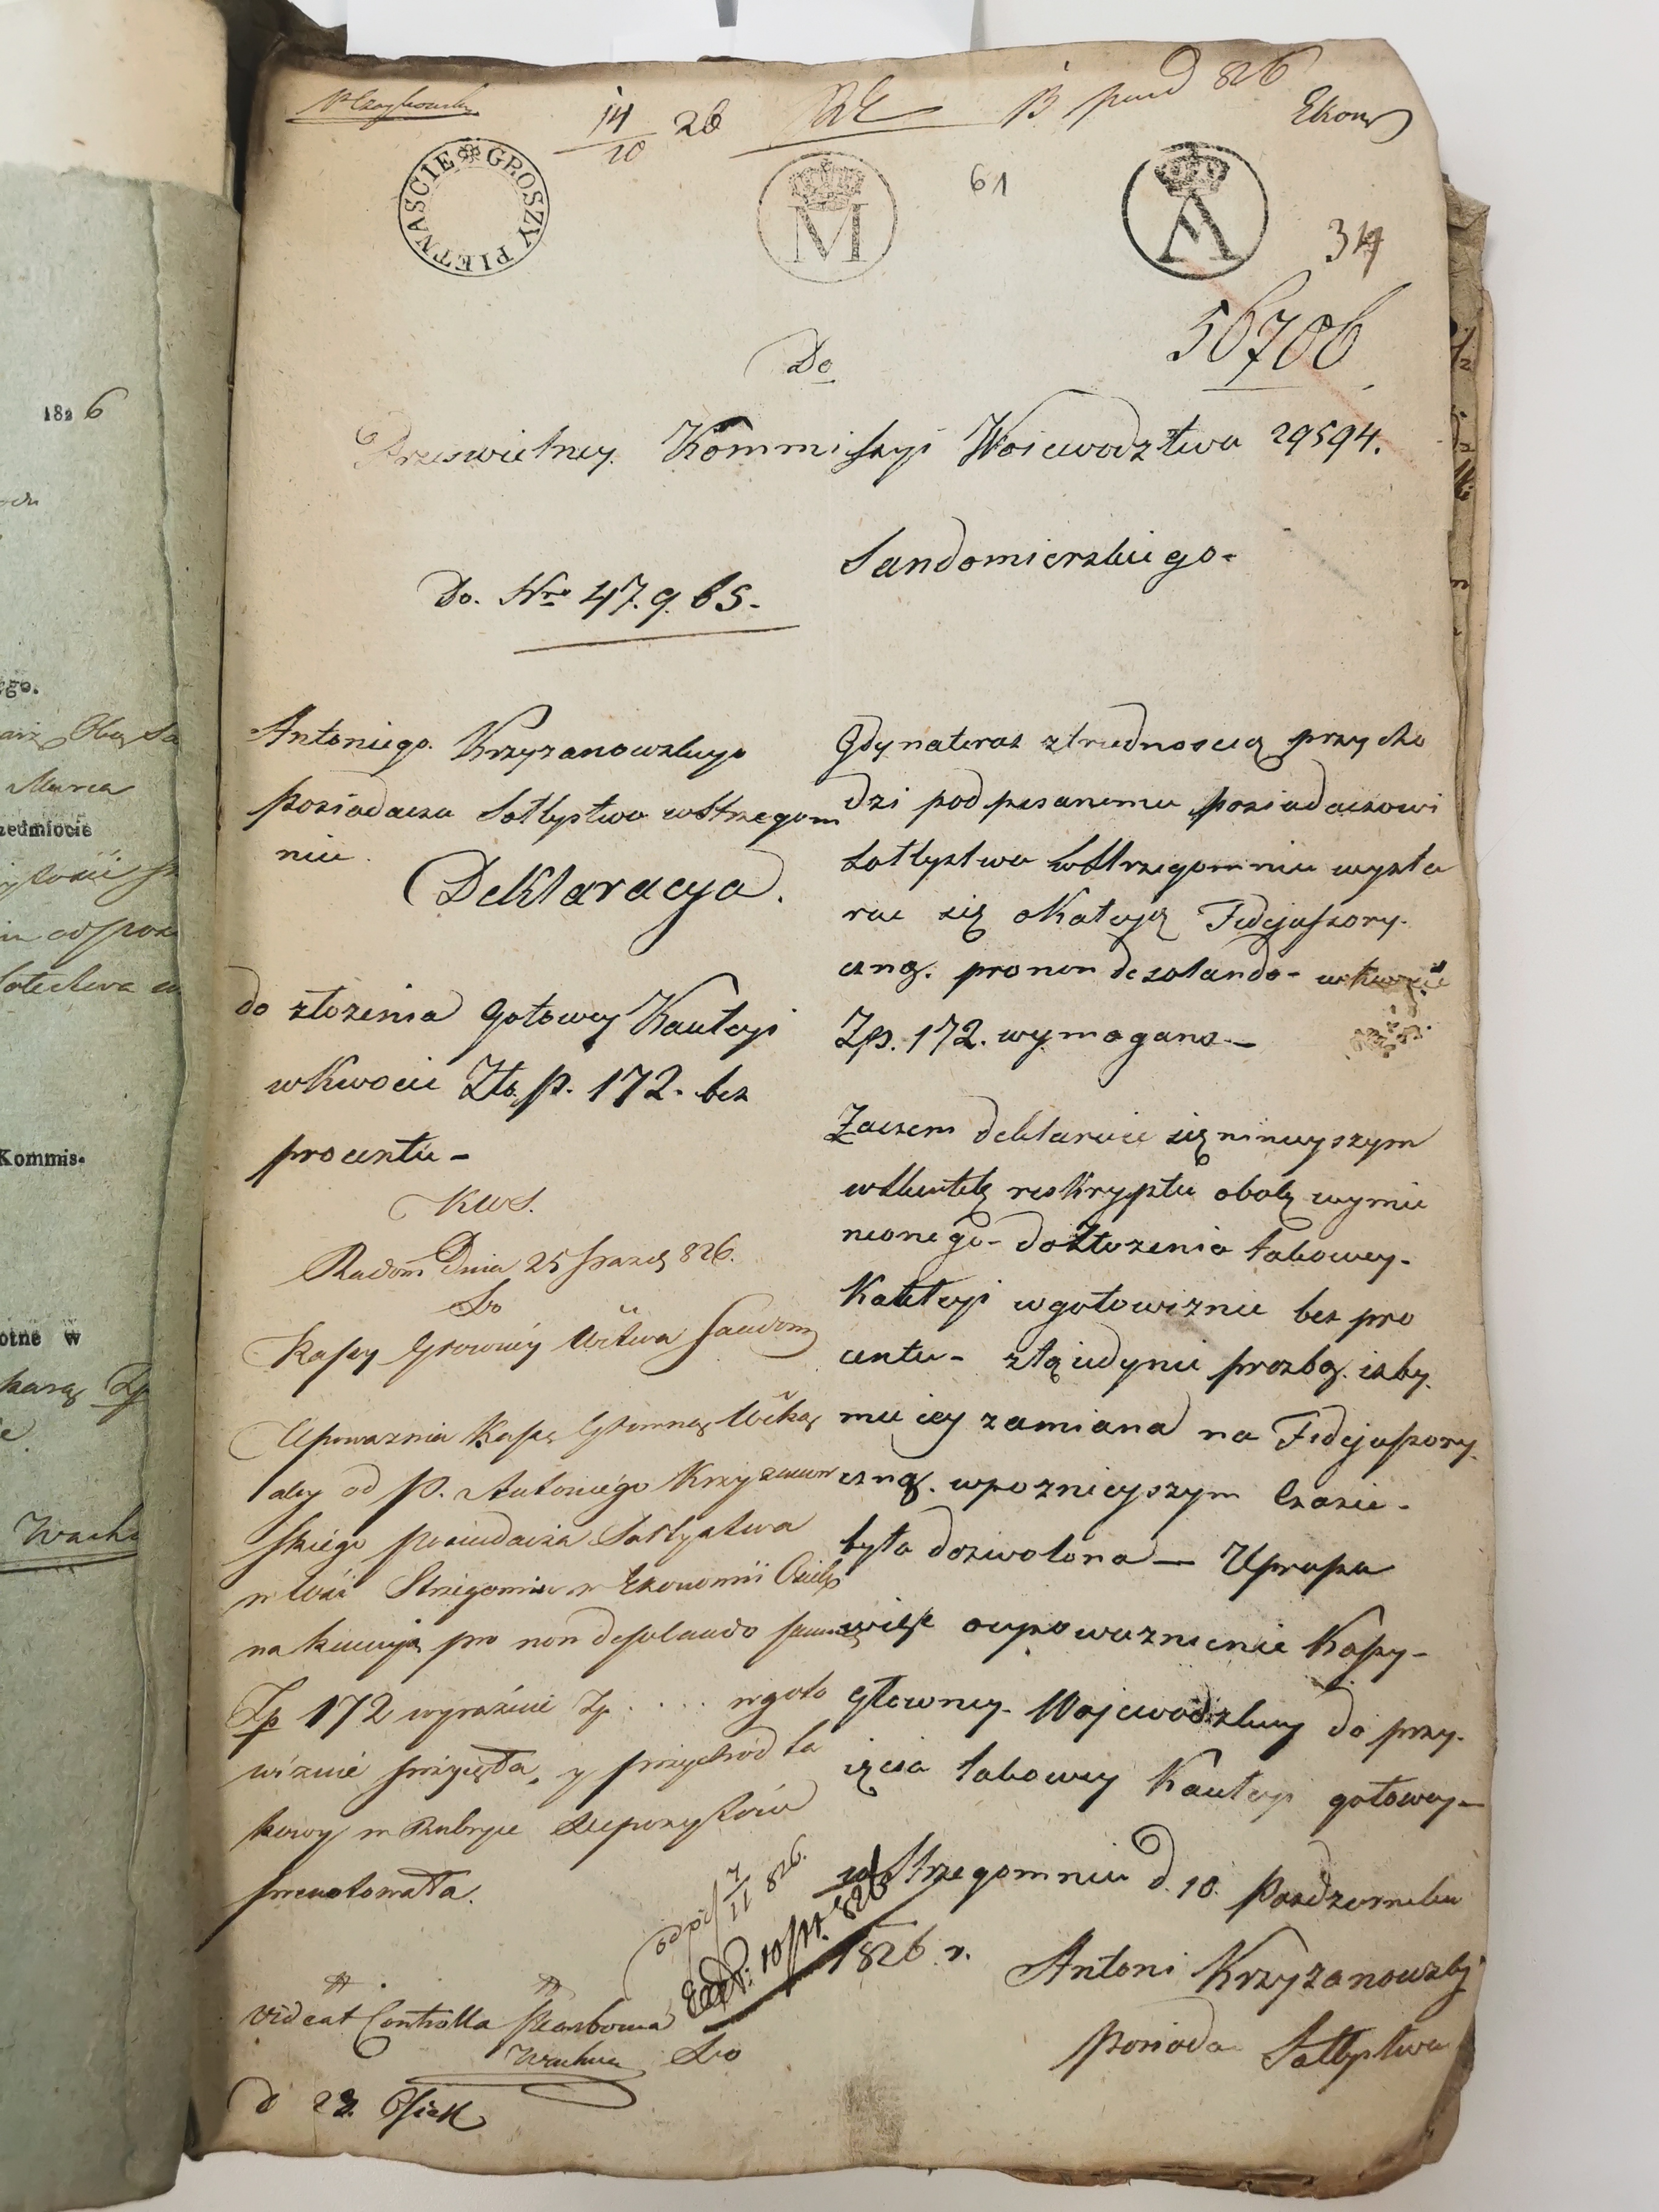 14/10 26
13 paźd 826
Ekon
PIETNASCIE GROSZY
M
A
61
34
56706
Do
Prześwietney Kommissyi Woiewodztwa 29594.
Sandomierskiego-
Do. Nro 47.965.
Antoniego Krzyzanowskiego
posiadacza Sołtystwa wStrzegom
niu.
Deklaracya.
do złozenia Gotowey Kautcyi
w Kwocie Złt. p. 172. bez
procentu-
KWS.
Radom Dnia 25 Pazd 826.
Do
Kassy Głowney Wtwa Sandom
Upowaznia Kassę Głowną Wtką
aby od P. Antoniego Krzyzanow
skiego posiadacza Sołtystwa
w wsi Strzegomiu w Ekonomii Osiek
na kaucyą pro non desolando summę
Zp 172 wyraźnie Zp .... w goto
wiznie przyięła, y przychód ta
kowy w Rubryce Depozytów
zanotowała.
Videat Controlla Skarbowa
d 22. Osiek
odpis 7/11 826.
Exped: 10/11. 826
Do
Gdy nateraz ztrudnoscią przycho
dzi podpisanemu posiadaczowi
Sołtystwa wStrzegomniu wysta
rac się oKatcyą Fidejussory.
czną. pro non desolando- wkwocie
Zp. 172. wymaganą-
Zaczem deklaruie się ninieyszym
wSkutek reskryptu obok wymie
nionego- do Złozenia takowey-
Kautcyi w gotowiznie bez pro
centu- ztą iedynie prozbą. izby.
mu iey zamiana na Fidejussory.
czną. wpoznieyszym Czasie-
była dozwolona- Uprasza
więc oupowaznienie Kassy-
Głowney- Wojewodzkiey do przy-
ięcia takowey Kautcyi gotowey-
w Strzegomniu d. 10. Pazdziernika
1826 r.
Antoni Krzyzanowski
posiada Sołtystwa